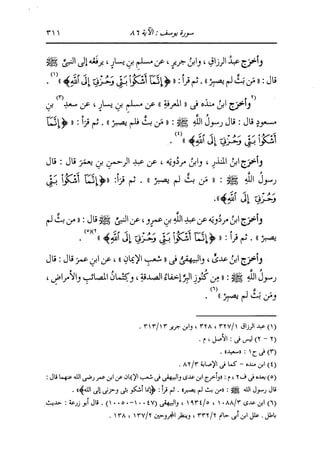 سورة يوسف : الآية ٨٦ ٣١١
وأخرَج عبدُ الرزاقِ ، وابنُ جريرٍ ، عن مسلمِ بنِ يسارٍ ، يرفَعُه إلى النبيِّ ﷺ
قال : « مَن بَثَّ لم يصبِرْ » . ثم قرَأ : « ﴿ إِنَّمَآ أَشْكُوا بَثِّى وَحُزْنِىٓ إِلَى ٱللَّهِ ﴾ » (١) .
(٢) وأخرَج ابنُ منده فى « المعرفةِ » عن مسلمِ بنِ يسارٍ ، عن سعدِ (٣) بنِ
مسعودٍ قال : قال رسولُ اللَّهِ ﷺ : « مَن بَثَّ فلم يصبِرْ » . ثم قرَأ : « ﴿ إِنَّمَآ
أَشْكُوا بَثِّى وَحُزْنِىٓ إِلَى ٱللَّهِ ﴾ » (٤) .
وأخرَج ابنُ المنذرِ ، وابنُ مردُويَه ، عن عبدِ الرحمنِ بنِ يعمَرَ قال : قال
رسولُ اللَّهِ ﷺ : « مَن بَثَّ لم يصبِرْ » . ثم قرَأ : « ﴿ إِنَّمَآ أَشْكُوا بَثِّى
وَحُزْنِىٓ إِلَى ٱللَّهِ ﴾ » .
وأخرَج ابنُ مردُويَه عن عبدِ اللَّهِ بنِ عمرٍو ، عن النبيِّ ﷺ قال : « من بَثَّ لم
يصبِرْ » . ثم قرَأ : « ﴿ إِنَّمَآ أَشْكُوا بَثِّى وَحُزْنِىٓ إِلَى ٱللَّهِ ﴾ » (٥)(٢) .
وأخرَج ابنُ عدىٍّ ، والبيهقىُّ فى « شعبِ الإيمانِ » ، عن ابنِ عمرَ قال : قال
رسولُ اللَّهِ ﷺ : « مِن كُنوزِ البِرِّ إخفاءُ الصدقةِ ، وكتمانُ المصائبِ والأمراضِ ،
ومَن بَثَّ لم يصبِرْ » (٦) .
(١) عبد الرزاق ٣٢٧/١ ، ٣٢٨ ، وابن جرير ٣١٣/١٣ .
(٢ - ٢) ليس فى : الأصل ، م .
(٣) فى ح ١ : « سعيد » .
(٤) ابن منده - كما فى الإصابة ٨٢/٣ .
(٥) بعده فى ف ٢ ، م : « وأخرج ابن عدى والبيهقى فى شعب الإيمان عن ابن عمر رضى الله عنهما قال :
قال رسول الله ﷺ : من بث لم يصبر . ثم قرأ : ﴿ إنما أشكو بثى وحزنى إلى الله ﴾ » .
(٦) ابن عدى ١٠٨٨/٣ ، ١٩٣٤/٥ ، والبيهقى (١٠٠٤٧ - ١٠٠٥٠) . قال أبو زرعة : حديث
باطل . علل ابن أبى حاتم ٣٣٢/٢ ، وينظر المجروحين ١٣٧/٢ ، ١٣٨ .